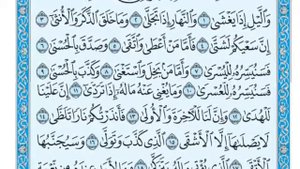 وَاللَّيْلِ إِذَا يَغْشَىٰ ١ وَالنَّهَارِ إِذَا تَجَلَّىٰ ٢ وَمَا خَلَقَ الذَّكَرَ وَالْأُنثَىٰ ٣
إِنَّ سَعْيَكُمْ لَشَتَّىٰ ٤ فَأَمَّا مَنْ أَعْطَىٰ وَاتَّقَىٰ ٥ وَصَدَّقَ بِالْحُسْنَىٰ ٦
فَسَنُيَسِّرُهُ لِلْيُسْرَىٰ ٧ وَأَمَّا مَن بَخِلَ وَاسْتَغْنَىٰ ٨ وَكَذَّبَ بِالْحُسْنَىٰ ٩
فَسَنُيَسِّرُهُ لِلْعُسْرَىٰ ١٠ وَمَا يُغْنِي عَنْهُ مَالُهُ إِذَا تَرَدَّىٰ ١١ إِنَّ عَلَيْنَا
لَلْهُدَىٰ ١٢ وَإِنَّ لَنَا لَلْآخِرَةَ وَالْأُولَىٰ ١٣ فَأَنذَرْتُكُمْ نَارًا تَلَظَّىٰ ١٤
لَا يَصْلَاهَا إِلَّا الْأَشْقَى ١٥ الَّذِي كَذَّبَ وَتَوَلَّىٰ ١٦ وَسَيُجَنَّبُهَا
الْأَتْقَى ١٧ الَّذِي يُؤْتِي مَالَهُ يَتَزَكَّىٰ ١٨